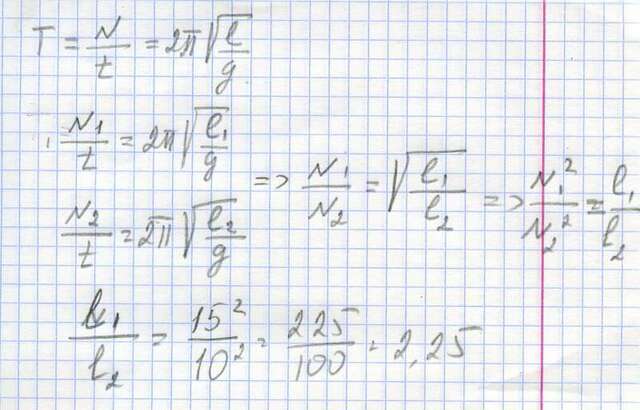 T = N/t = 2π√(l/g)
N₁/t = 2π√(l₁/g)
N₂/t = 2π√(l₂/g) => N₁/N₂ = √(l₁/l₂) => N₁²/N₂² = l₁/l₂
l₁/l₂ = 15²/10² = 225/100 = 2,25